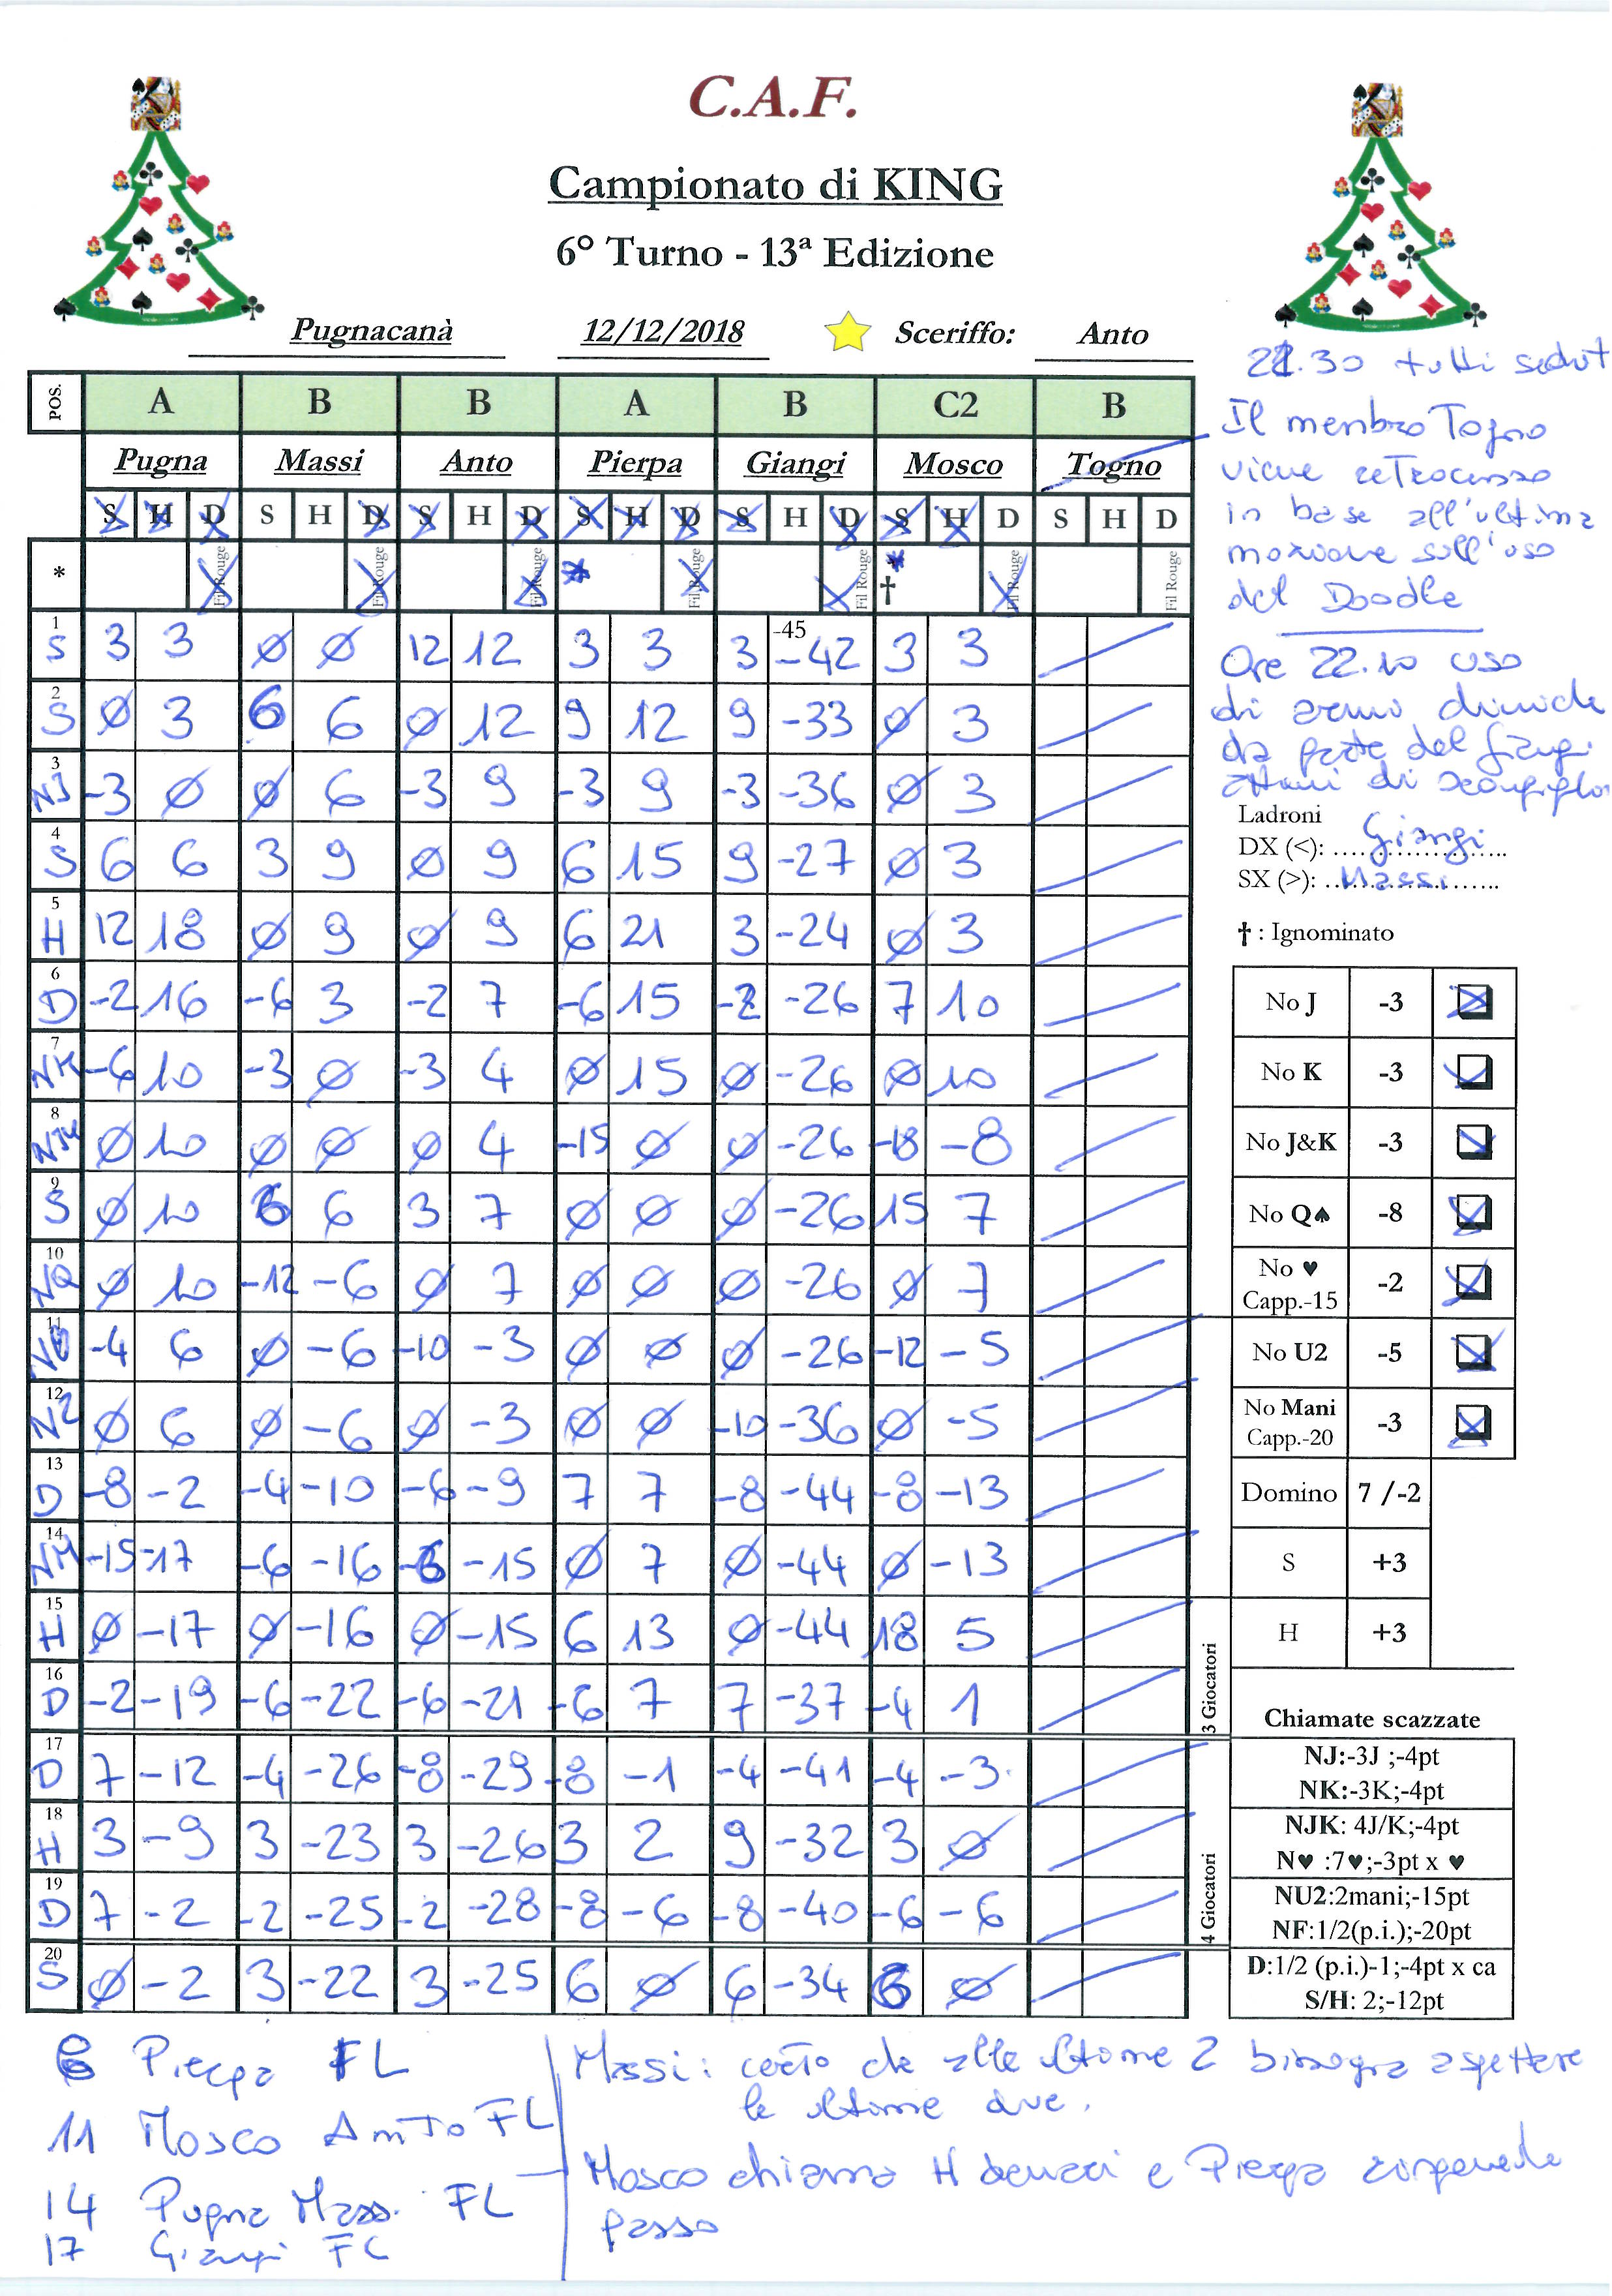 C.A.F.
Campionato di KING
6° Turno - 13ª Edizione
Pugnacanà 12/12/2018 Sceriffo: Anto
21.30 tutti seduti
Il membro Togno
viene retrocesso
in base all'ultima
mozione sull'uso
del Doodle
Ore 22.10 uso
di armi chimiche
da parte del Giangi
POS. A B B A B C2 B
Pugna Massi Anto Pierpa Giangi Mosco Togno
S H D S H D S H D S H D S H D S H D S H D
* Fil Rouge Fil Rouge Fil Rouge * Fil Rouge Fil Rouge * † Fil Rouge Fil Rouge
1 S 3 3 Ø Ø 12 12 3 3 3 -45 -42 3 3
2 S Ø 3 6 6 Ø 12 9 12 9 -33 Ø 3
3 NJ -3 Ø Ø 6 -3 9 -3 9 -3 -36 Ø 3
4 S 6 6 3 9 Ø 9 6 15 9 -27 Ø 3
5 H 12 18 Ø 9 Ø 9 6 21 3 -24 Ø 3
6 D -2 16 -6 3 -2 7 -6 15 -2 -26 7 10
7 NK -6 10 -3 Ø -3 4 Ø 15 Ø -26 Ø 10
8 NJK Ø 10 Ø Ø Ø 4 -15 Ø Ø -26 -18 -8
9 S Ø 10 6 6 3 7 Ø Ø Ø -26 15 7
10 NQ Ø 10 -12 -6 Ø 7 Ø Ø Ø -26 Ø 7
11 -4 6 Ø -6 -10 -3 Ø Ø Ø -26 -12 -5
12 N2 Ø 6 Ø -6 Ø -3 Ø Ø -10 -36 Ø -5
13 D -8 -2 -4 -10 -6 -9 7 7 -8 -44 -8 -13
14 NM -15 -17 -6 -16 -6 -15 Ø 7 Ø -44 Ø -13
15 H Ø -17 Ø -16 Ø -15 6 13 Ø -44 18 5
16 D -2 -19 -6 -22 -6 -21 -6 7 7 -37 -4 1
17 D 7 -12 -4 -26 -8 -29 -8 -1 -4 -41 -4 -3
18 H 3 -9 3 -23 3 -26 3 2 9 -32 3 Ø
19 D 7 -2 -2 -25 -2 -28 -8 -6 -8 -40 -6 -6
20 S Ø -2 3 -22 3 -25 6 Ø 6 -34 6 Ø
3 Giocatori
4 Giocatori
Ladroni
DX (<): Giangi
SX (>): Massi
† : Ignominato
No J -3
No K -3
No J&K -3
No Q♠ -8
No ♥ Capp.-15 -2
No U2 -5
No Mani Capp.-20 -3
Domino 7 /-2
S +3
H +3
Chiamate scazzate
NJ:-3J ;-4pt
NK:-3K;-4pt
NJK: 4J/K;-4pt
N♥ :7♥;-3pt x ♥
NU2:2mani;-15pt
NF:1/2(p.i.);-20pt
D:1/2 (p.i.)-1;-4pt x ca
S/H: 2;-12pt
6 Pierpa FL
11 Mosco Anto FL
14 Pugna Massi FL
17 Giangi FL
Massi: certo che alle ultime 2 bisogna aspettare
le ultime due.
Mosco chiama H e Pierpa
passo